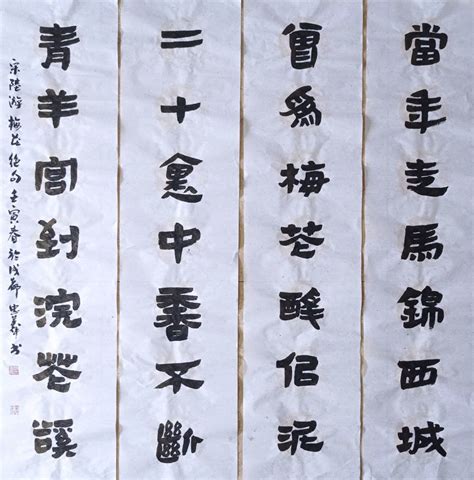 當年走馬錦西城
曾為梅花醉佀泥
二十裏中香不斷
青羊宮到浣花谿
宋陸游梅花絕句壬寅春於成都書